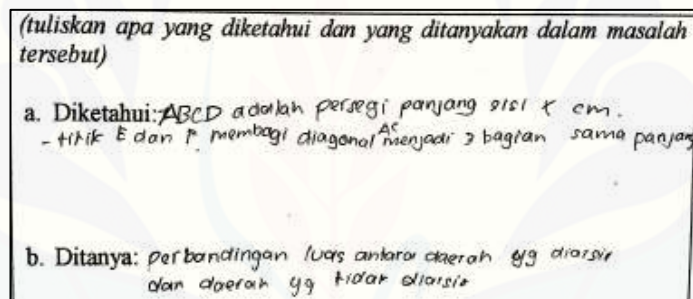 (tuliskan apa yang diketahui dan yang ditanyakan dalam masalah
tersebut)
a. Diketahui: ABCD adalah persegi panjang sisi x cm.
- titik E dan F membagi diagonal AC menjadi 3 bagian sama panjang
b. Ditanya: perbandingan luas antara daerah yg diarsir
dan daerah yg tidak diarsir